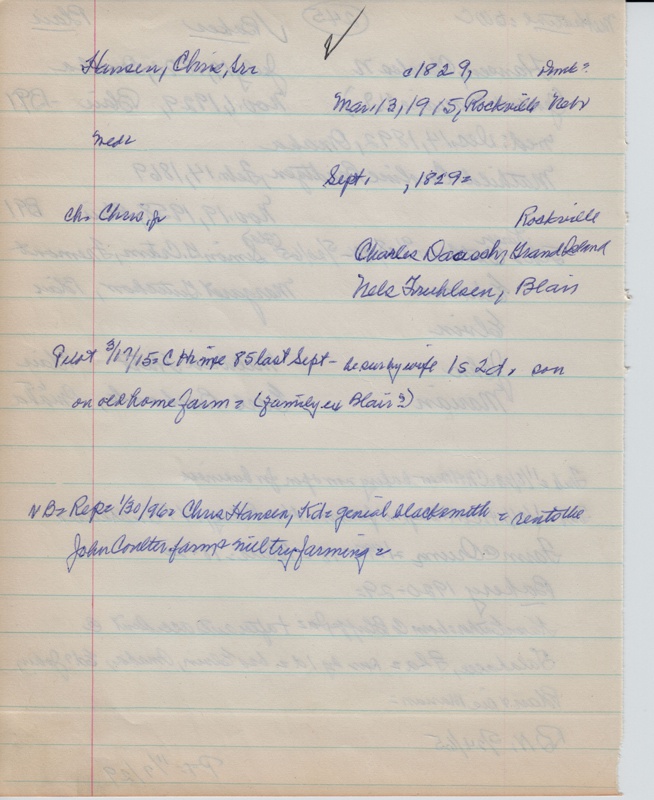 Hansen, Chris, Sr c1829, Denk?
Mar. 13, 1915, Rockville Nebr
med:
Sept. , 1829=
ch: Chris, jr Rockville
Charles Daassch, Grand Island
Nels Truehlsen, Blair
Pilot 3/17/15= C H 85 last Sept - he sur by wife 1s 2d, son
on old home farm = (family ex Blair?)
N B= Rep= 1/30/96= Chris Hansen, Kd= genial blacksmith = rents the
John Coulter farm & will try farming=